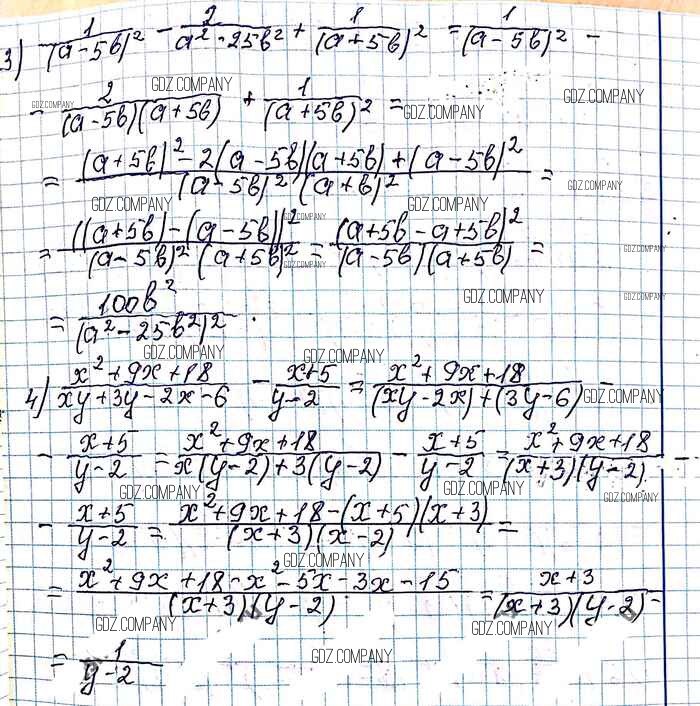 3) 1/(a-5b)² - 2/(a²-25b²) + 1/(a+5b)² = 1/(a-5b)² -
GDZ.COMPANY GDZ.COMPANY GDZ.COMPANY
- 2/((a-5b)(a+5b)) + 1/(a+5b)² =
GDZ.COMPANY
= ((a+5b)² - 2(a-5b)(a+5b) + (a-5b)²)/((a-5b)²(a+b)²) =
GDZ.COMPANY GDZ.COMPANY
GDZ.COMPANY GDZ.COMPANY GDZ.COMPANY
= ((a+5b)-(a-5b))²/((a-5b)²(a+5b)²) = (a+5b-a+5b)²/((a-5b)(a+5b)) =
GDZ.COMPANY GDZ.COMPANY
GDZ.COMPANY GDZ.COMPANY
= 100b²/(a²-25b²)².
GDZ.COMPANY GDZ.COMPANY
4) (x²+9x+18)/(xy+3y-2x-6) - (x+5)/(y-2) = (x²+9x+18)/((xy-2x)+(3y-6)) -
GDZ.COMPANY
- (x+5)/(y-2) = (x²+9x+18)/(x(y-2)+3(y-2)) - (x+5)/(y-2) = (x²+9x+18)/((x+3)(y-2)) -
GDZ.COMPANY GDZ.COMPANY GDZ.COMPANY
- (x+5)/(y-2) = (x²+9x+18-(x+5)(x+3))/((x+3)(x-2)) =
GDZ.COMPANY
= (x²+9x+18-x²-5x-3x-15)/((x+3)(y-2)) = (x+3)/((x+3)(y-2)) =
GDZ.COMPANY GDZ.COMPANY
= 1/(y-2)
GDZ.COMPANY